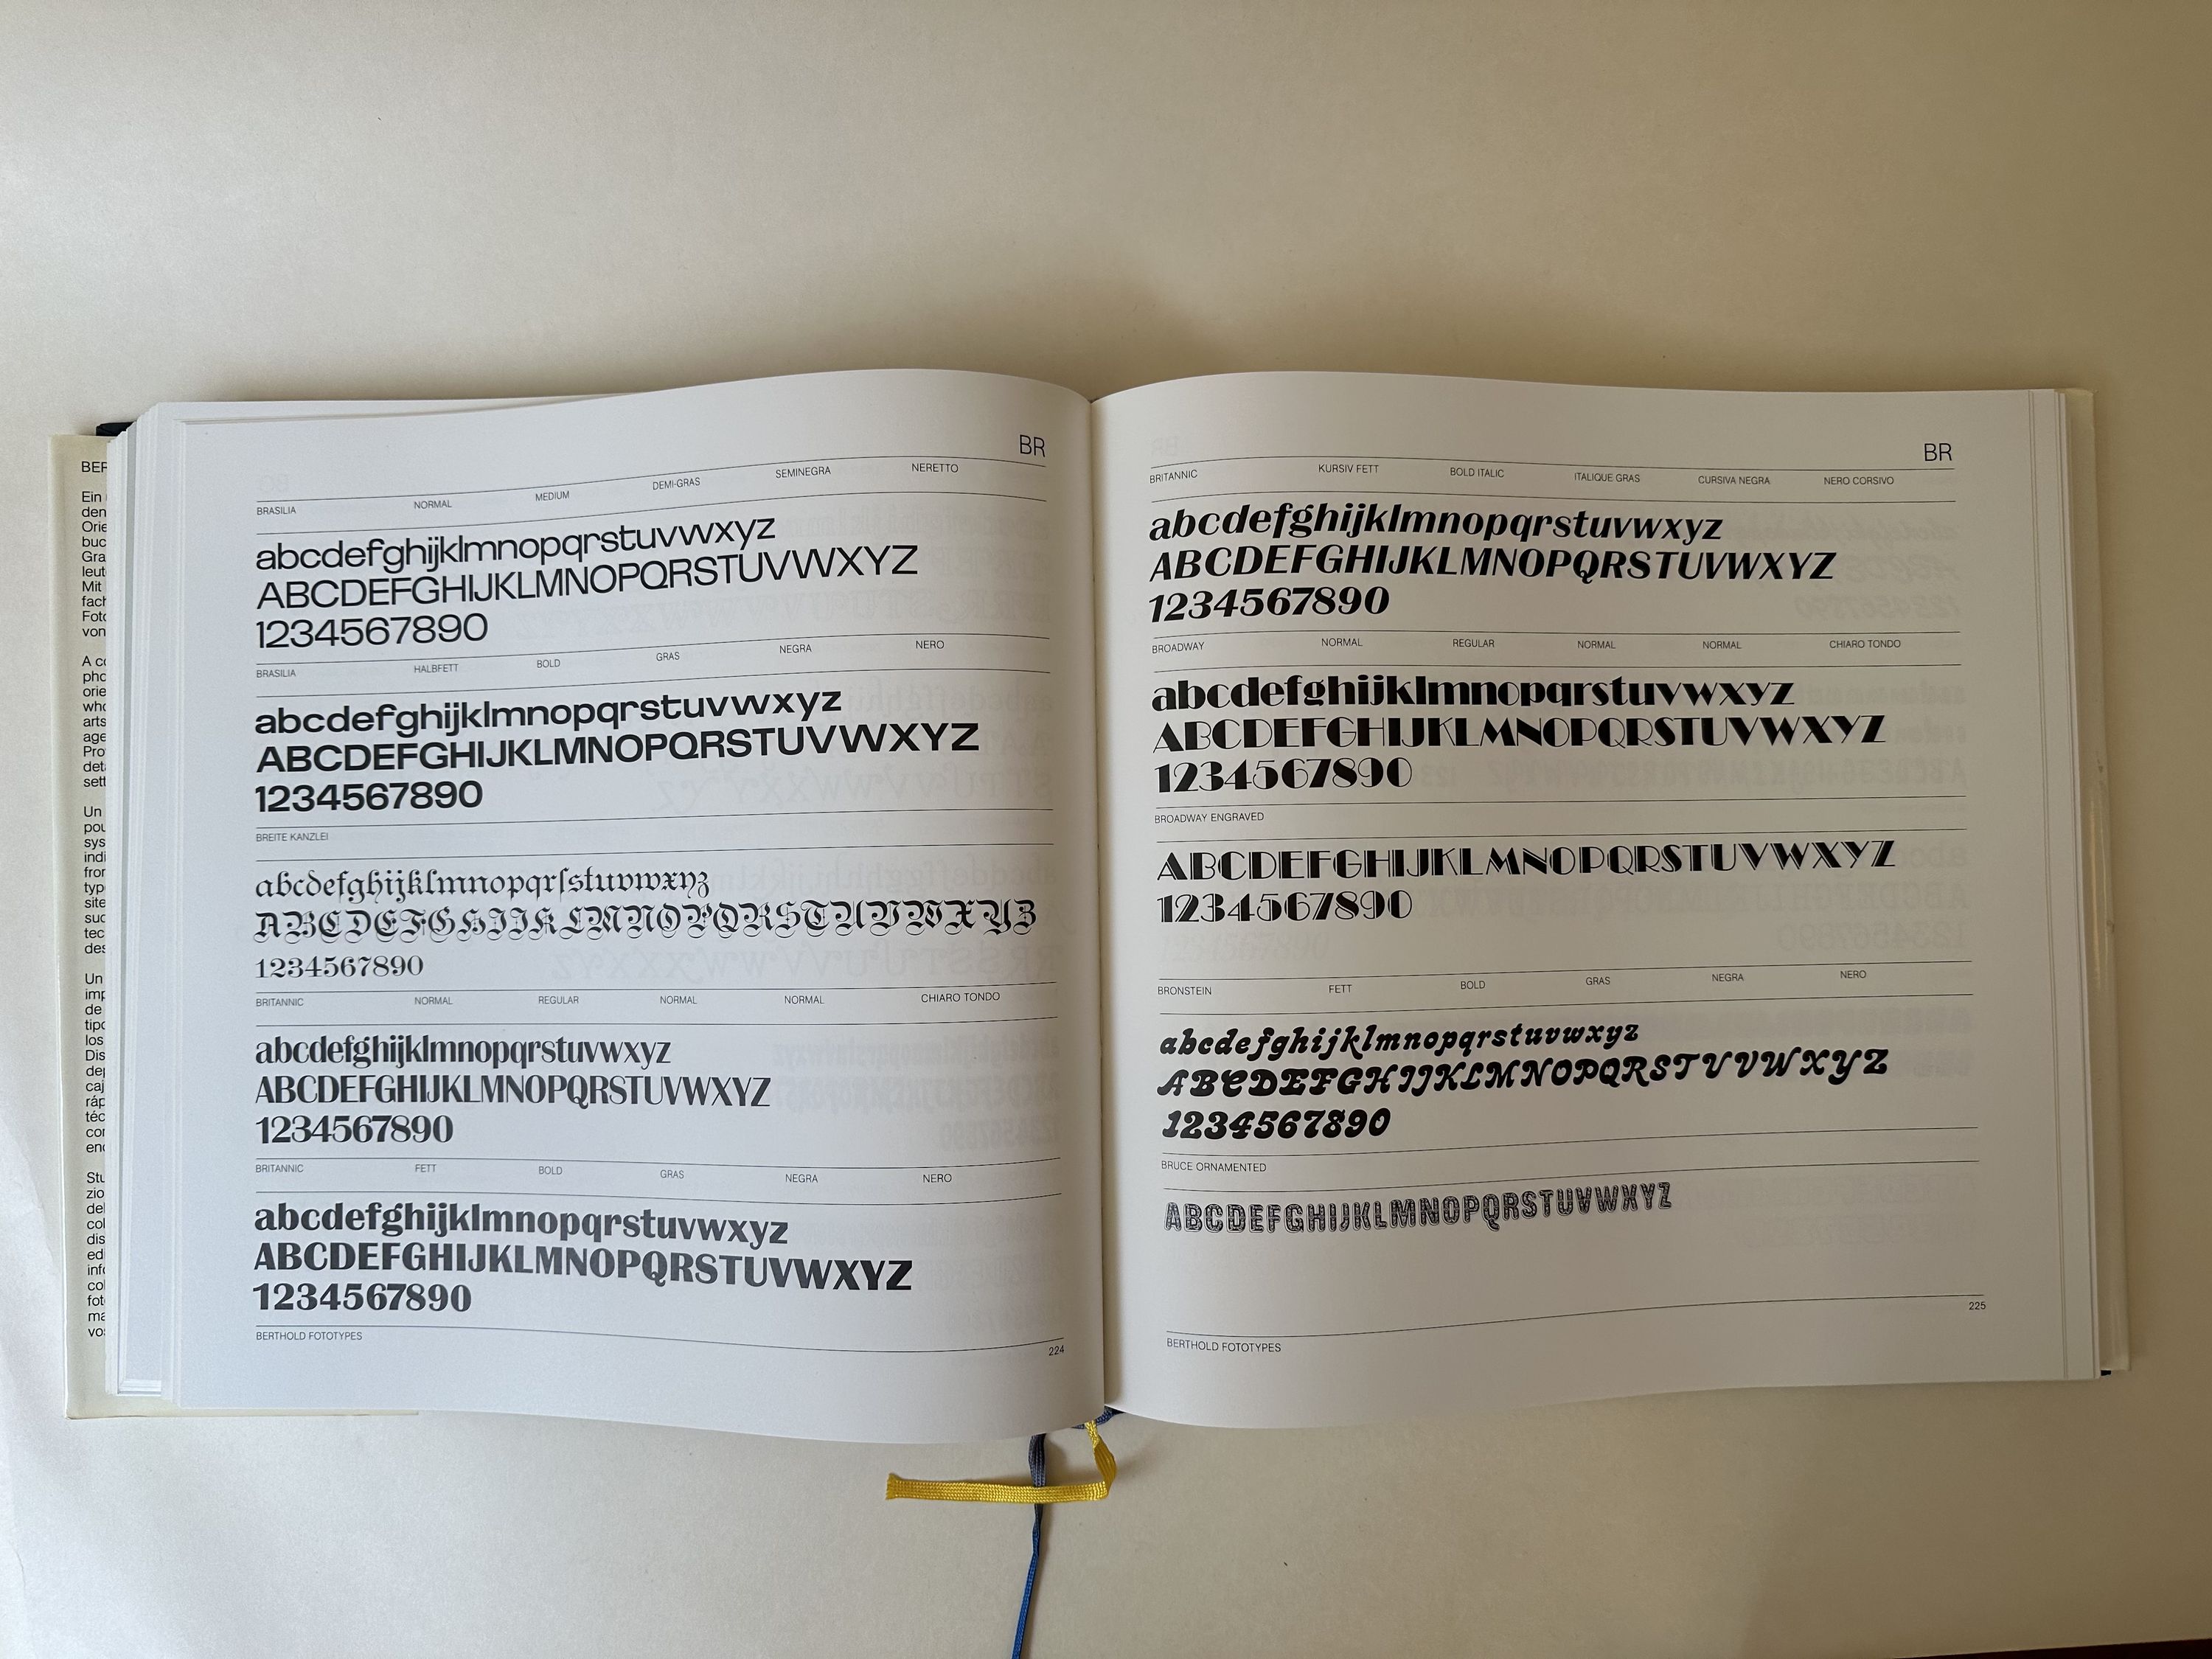 BER
Ein
den
Orie
buc
Gra
leut
Mit
fach
Foto
von
A co
pho
orie
who
arts
age
Pro
det
sett
Un
pou
sys
indi
fron
typ
site
suc
tec
des
Un
imp
de
tipo
los
Dis
dep
caj
ráp
téc
con
enc
Stu
zio
del
col
dis
edi
info
col
fot
ma
vos
BR
BRASILIA NORMAL MEDIUM DEMI-GRAS SEMINEGRA NERETTO
abcdefghijklmnopqrstuvwxyz
ABCDEFGHIJKLMNOPQRSTUVWXYZ
1234567890
BRASILIA HALBFETT BOLD GRAS NEGRA NERO
abcdefghijklmnopqrstuvwxyz
ABCDEFGHIJKLMNOPQRSTUVWXYZ
1234567890
BREITE KANZLEI
abcdefghijklmnopqrſstuvwxyz
ABCDEFGHIJKLMNOPQRSTUVWXYZ
1234567890
BRITANNIC NORMAL REGULAR NORMAL NORMAL CHIARO TONDO
abcdefghijklmnopqrstuvwxyz
ABCDEFGHIJKLMNOPQRSTUVWXYZ
1234567890
BRITANNIC FETT BOLD GRAS NEGRA NERO
abcdefghijklmnopqrstuvwxyz
ABCDEFGHIJKLMNOPQRSTUVWXYZ
1234567890
BERTHOLD FOTOTYPES 224
BR
BRITANNIC KURSIV FETT BOLD ITALIC ITALIQUE GRAS CURSIVA NEGRA NERO CORSIVO
abcdefghijklmnopqrstuvwxyz
ABCDEFGHIJKLMNOPQRSTUVWXYZ
1234567890
BROADWAY NORMAL REGULAR NORMAL NORMAL CHIARO TONDO
abcdefghijklmnopqrstuvwxyz
ABCDEFGHIJKLMNOPQRSTUVWXYZ
1234567890
BROADWAY ENGRAVED
ABCDEFGHIJKLMNOPQRSTUVWXYZ
1234567890
BRONSTEIN FETT BOLD GRAS NEGRA NERO
abcdefghijklmnopqrstuvwxyz
ABCDEFGHIJKLMNOPQRSTUVWXYZ
1234567890
BRUCE ORNAMENTED
ABCDEFGHIJKLMNOPQRSTUVWXYZ
BERTHOLD FOTOTYPES 225